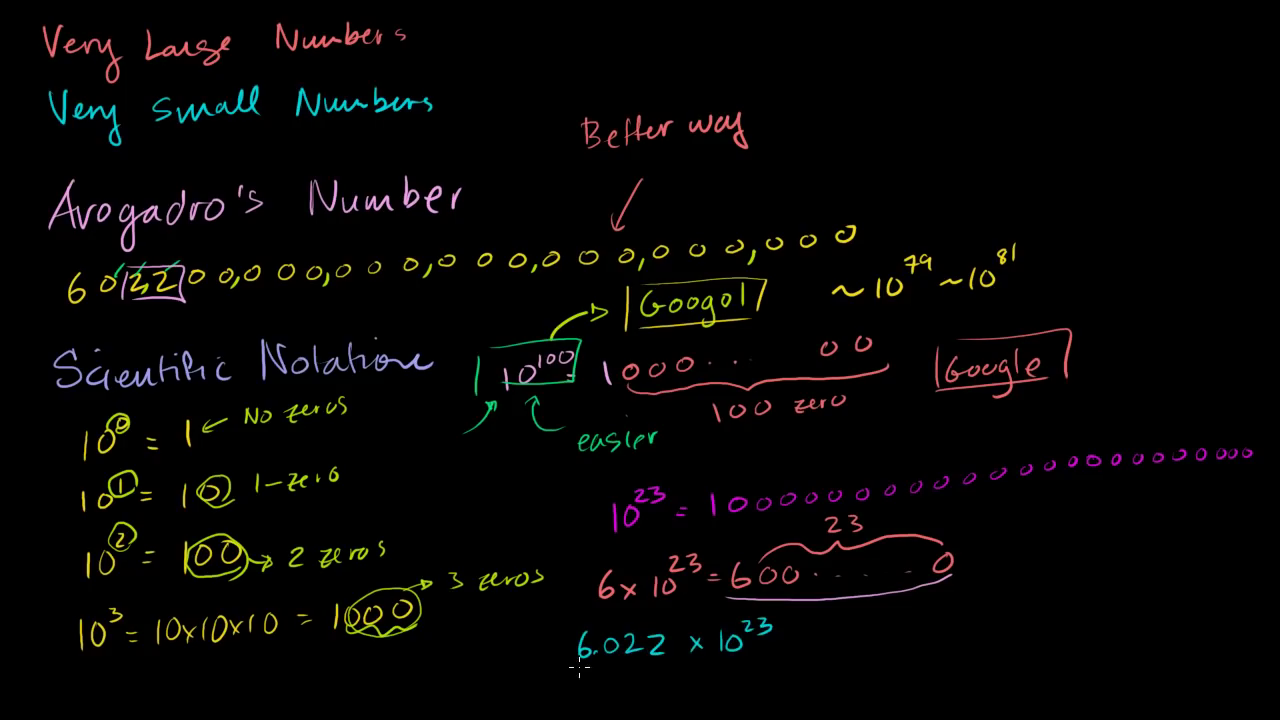 Very Large Numbers
Very Small Numbers
Better way
Avogadro's Number
6 0 2,2 0 0,0 0 0,0 0 0,0 0 0,0 0 0,0 0 0,0 0 0
Googol
~10^79 ~10^81
Scientific Notation
10^100 = 1 0 0 0 . . . 0 0
100 zero
Google
easier
10^0 = 1 No zeros
10^1 = 10 1-zero
10^2 = 100 2 zeros
10^3 = 10x10x10 = 1000 3 zeros
10^23 = 100000000000000000000000
23
6 x 10^23 = 600 . . . . . 0
6.022 x 10^23